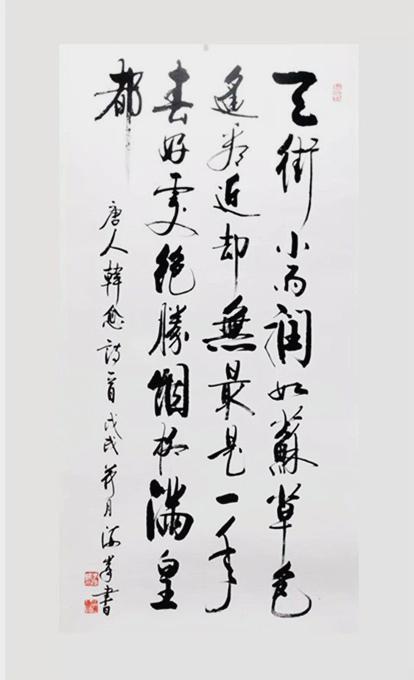 天街小雨润如蘇草色
遙看近却無最是一年
春好處絕勝烟柳滿皇
都
唐人韓愈詩一首戊戌荷月海書